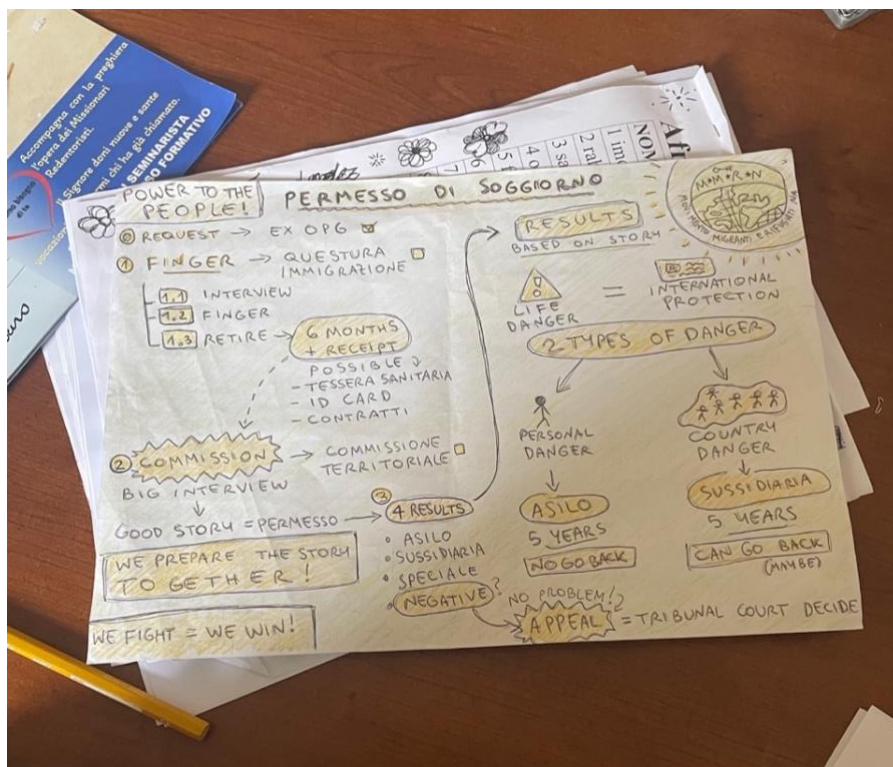 Accompagna con la preghiera
l'opera dei Missionari
Redentoristi.
Il Signore doni nuove e sante
chi ha già chiamato.
SEMINARISTA
SO FORMATIVO
Afr
NOM
1 im
2 ra
3 sa
4 o
5
6
7
POWER TO THE
PEOPLE!
PERMESSO DI SOGGIORNO
0 REQUEST → EX OPG
1 FINGER → QUESTURA
IMMIGRAZIONE
1.1 INTERVIEW
1.2 FINGER
1.3 RETIRE → 6 MONTHS
+ RECEIPT
POSSIBLE
- TESSERA SANITARIA
- ID CARD
- CONTRATTI
2 COMMISSION → COMMISSIONE
TERRITORIALE
BIG INTERVIEW
GOOD STORY = PERMESSO →
WE PREPARE THE STORY
TO GETHER!
WE FIGHT = WE WIN!
3
4 RESULTS
• ASILO
• SUSSIDIARIA
• SPECIALE
• NEGATIVE?
NO PROBLEM!
APPEAL = TRIBUNAL COURT DECIDE
RESULTS
BASED ON STORY
LIFE
DANGER
=
INTERNATIONAL
PROTECTION
2 TYPES OF DANGER
PERSONAL
DANGER
ASILO
5 YEARS
NO GO BACK
COUNTRY
DANGER
SUSSIDIARIA
5 YEARS
CAN GO BACK
(MAYBE)
M•M•R•N
MOVIMENTO MIGRANTI E RIFUGIATI NA